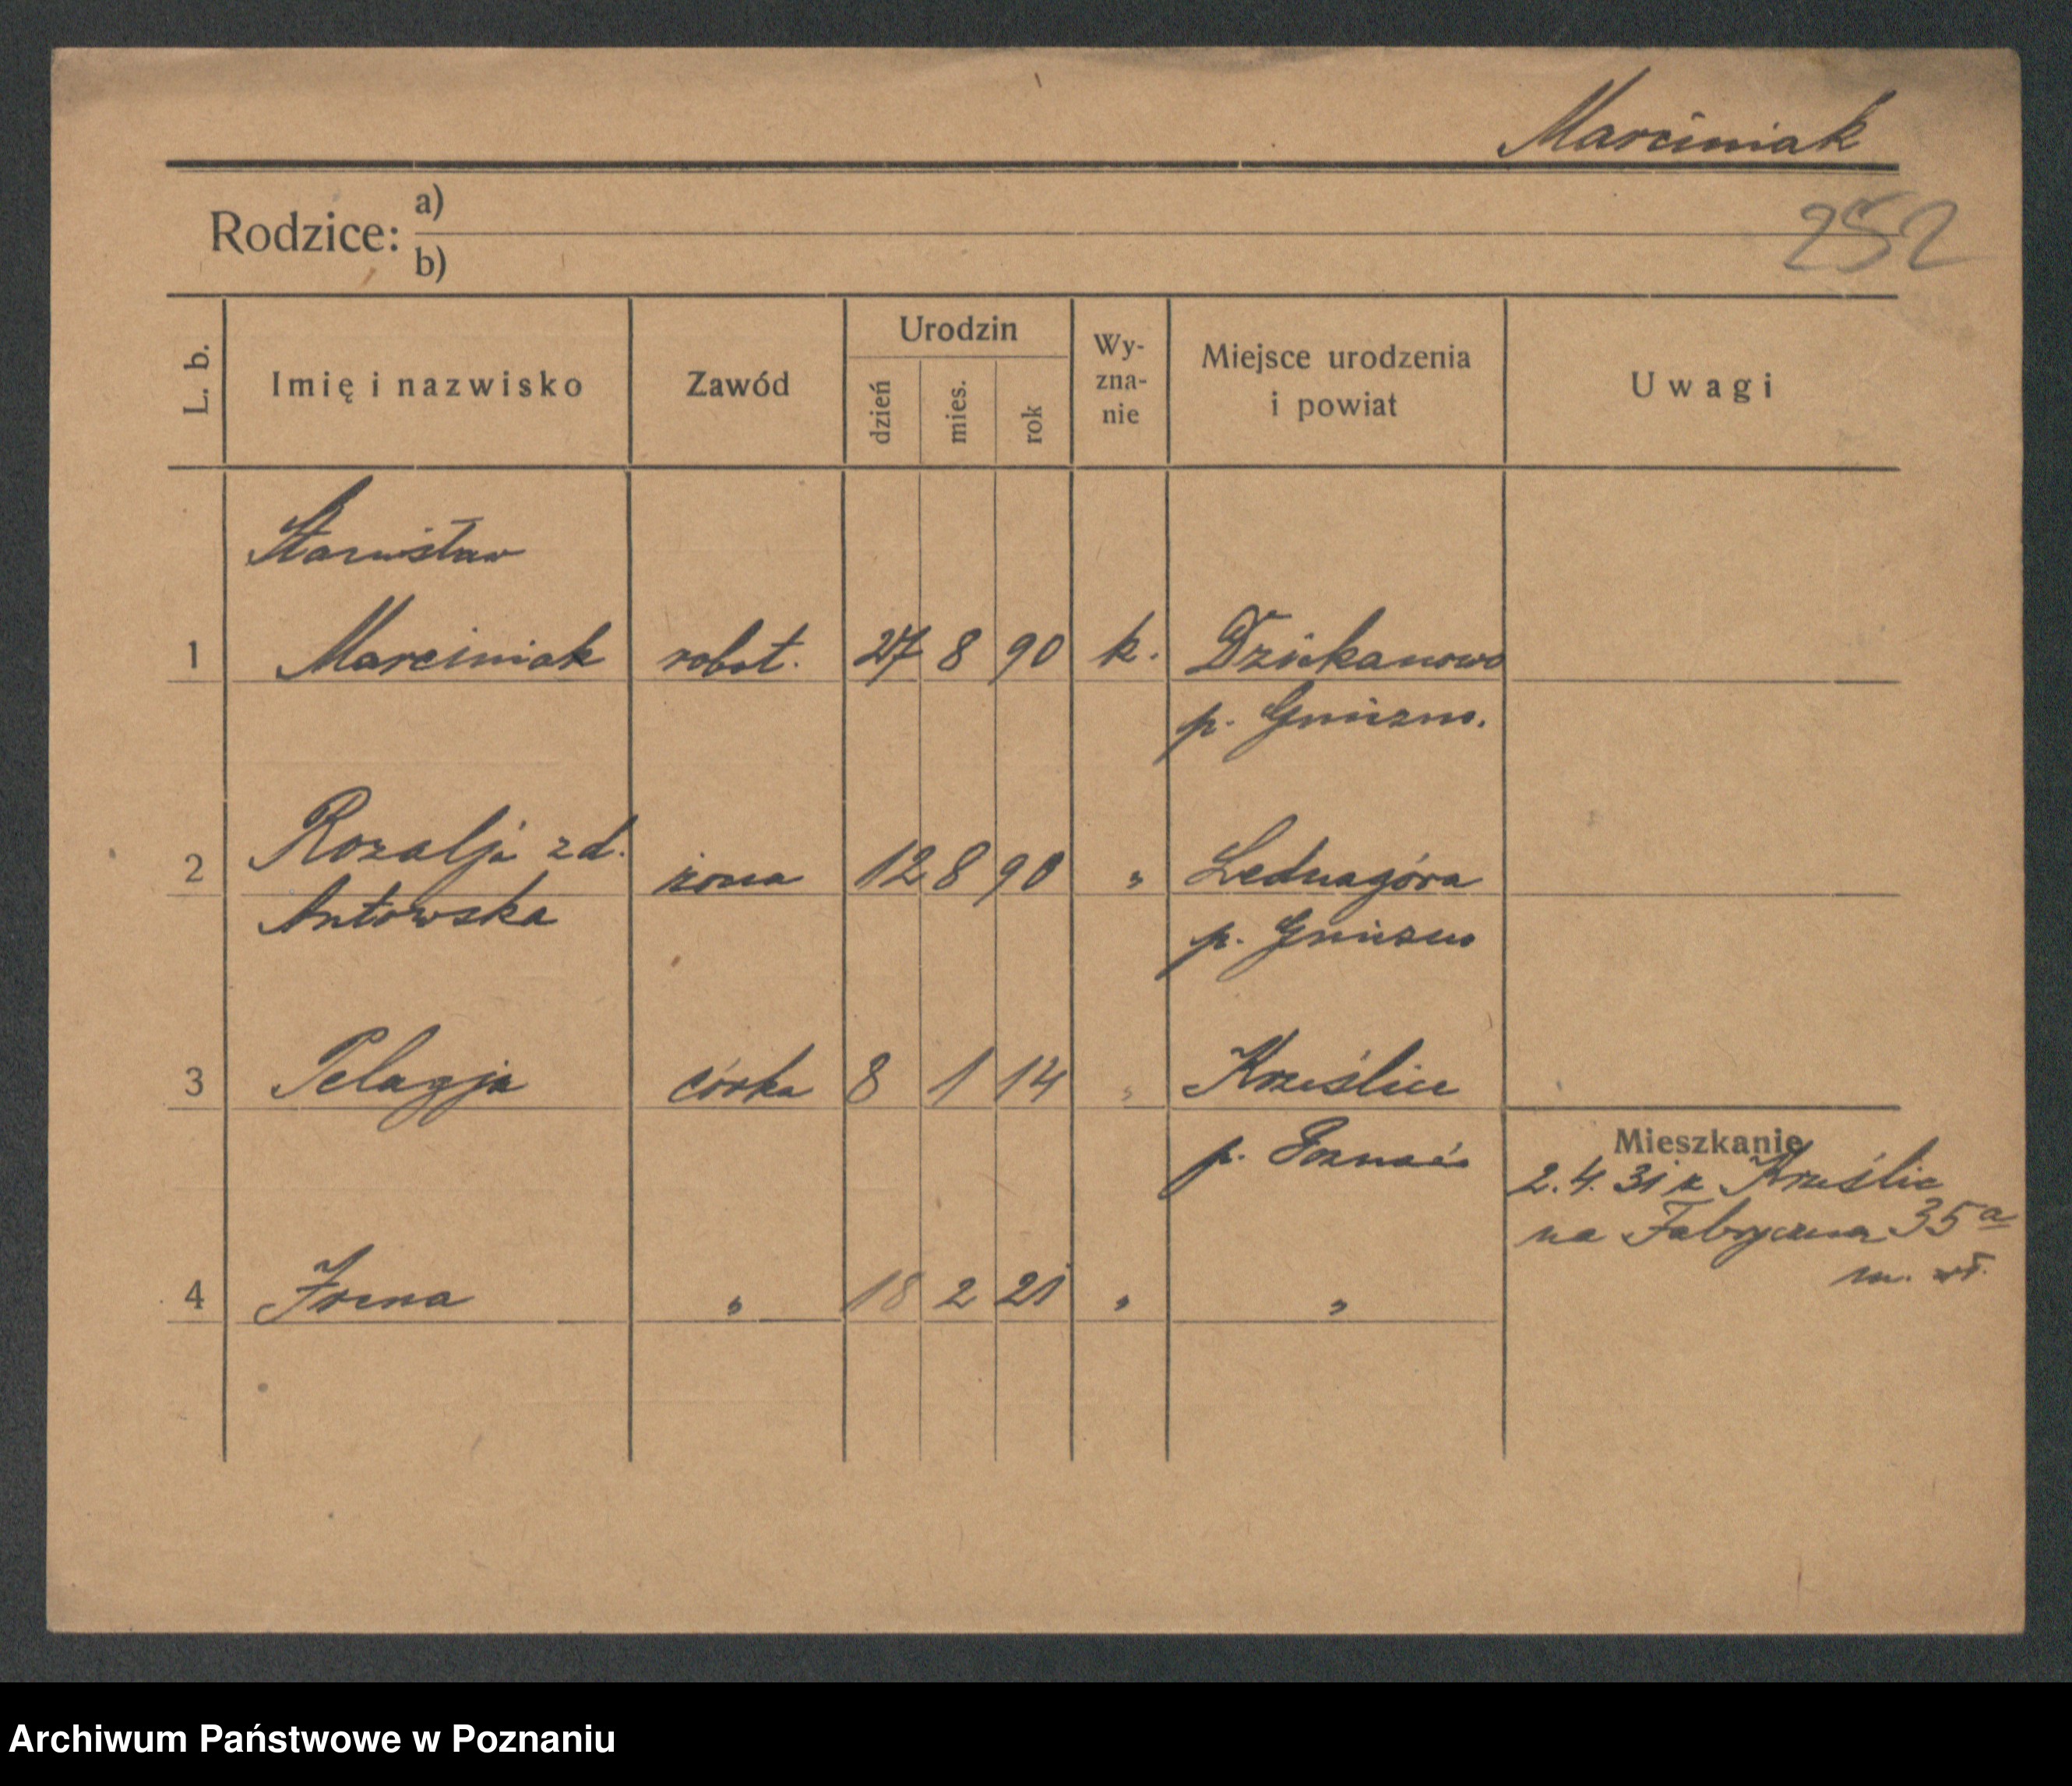 Marciniak
252
Rodzice: a)
b)
L. b. Imię i nazwisko Zawód Urodzin dzień mies. rok Wy-zna-nie Miejsce urodzenia i powiat Uwagi
Stanisław
1 Marciniak robot. 27 8 90 k. Dziekanowo
p. Gniezno.
Rozalja zd.
2 żona 12 8 90 " Lednagóra
Antowska p. Gniezno
3 Pelagja córka 8 1 14 " Krześlice
p. Poznań
Mieszkanie
2.4.31 z Krześlic
na Fabryczna 35a
m. wł.
4 Irena " 18 2 21 " "
Archiwum Państwowe w Poznaniu